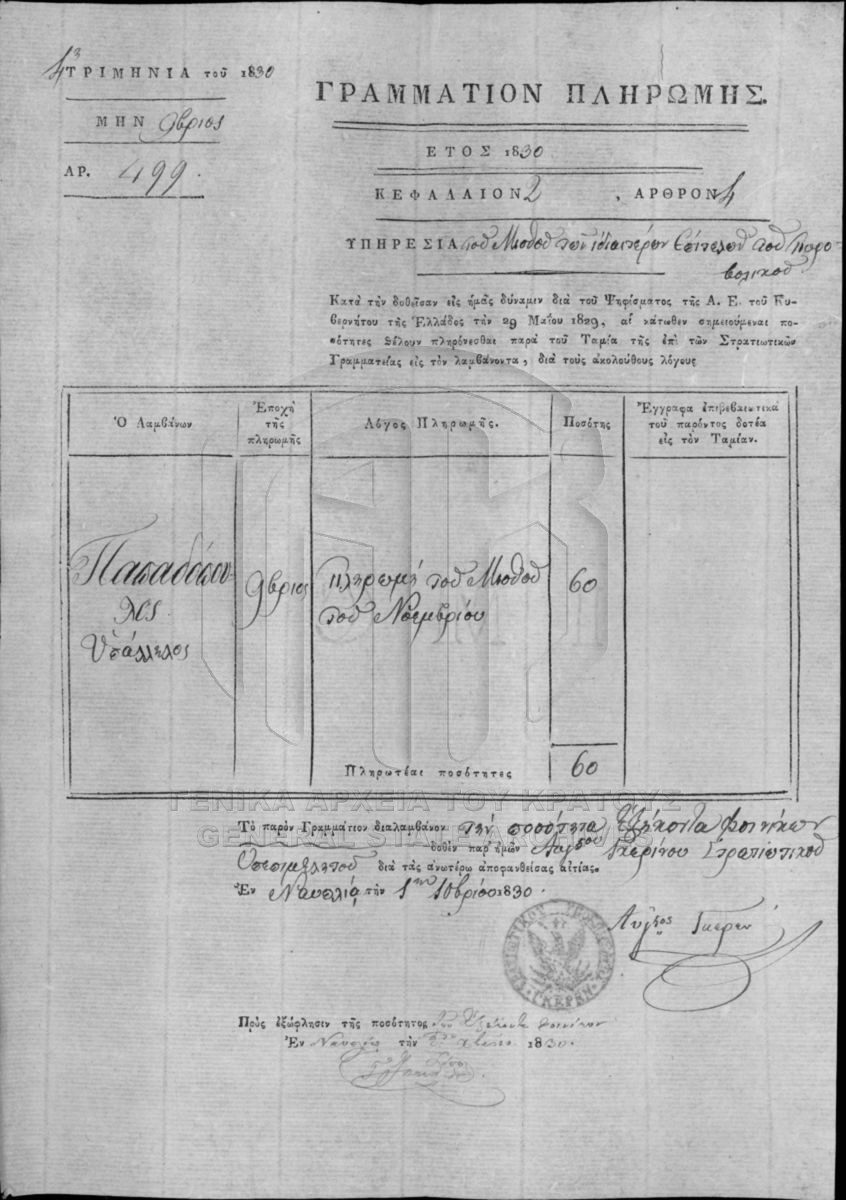 4 ΤΡΙΜΗΝΙΑ τοῦ 1830
ΜΗΝ 9βριος
ΑΡ. 499.
ΓΡΑΜΜΑΤΙΟΝ ΠΛΗΡΩΜΗΣ.
ΕΤΟΣ 1830
ΚΕΦΑΛΑΙΟΝ 2 , ΑΡΘΡΟΝ 4
ΥΠΗΡΕΣΙΑ τοῦ Μισθοῦ τῶν ἰδιαιτέρων τοῦ Πυρο-
βολικοῦ
Κατὰ τὴν δοθεῖσαν εἰς ἡμᾶς δύναμιν διὰ τοῦ Ψηφίσματος τῆς Α. Ε. τοῦ Κυ-
βερνήτου τῆς Ἑλλάδος τὴν 29 Μαΐου 1829, αἱ κάτωθεν σημειούμεναι πο-
σότητες θέλουν πληρόνεσθαι παρὰ τοῦ Ταμία τῆς ἐπὶ τῶν Στρατιωτικῶν
Γραμματείας εἰς τὸν λαμβάνοντα, διὰ τοὺς ἀκολούθους λόγους
Ὁ Λαμβάνων
Ἐποχὴ τῆς πληρωμῆς
Λόγος Πληρωμῆς.
Ποσότης
Ἔγγραφα ἐπιβεβαιωτικὰ
τοῦ παρόντος δοτέα
εἰς τὸν Ταμίαν.
Παπαδόπου-
λος
Ὑπάλληλος
9βριος
Πληρωμὴ τοῦ Μισθοῦ
τοῦ Νοεμβρίου
60
Πληρωτέαι ποσότητες 60
ΓΕΝΙΚΑ ΑΡΧΕΙΑ ΤΟΥ ΚΡΑΤΟΥΣ
GENERAL STATE ARCHIVES
Τὸ παρὸν Γραμμάτιον διαλαμβάνον τὴν ποσότητα ἑξήκοντα φοινίκων
δοθὲν παρ' ἡμῶν Αὐγούστου Γκερίνου Στρατιωτικοῦ
Ὑπεπιμελητοῦ διὰ τὰς ἀνωτέρω ἀποφανθείσας αἰτίας.
Ἐν Ναυπλίᾳ τὴν 1ην 10βρίου 1830.
Αὔγ. Γκερεν
ΓΚΕΡΕΝ
Πρὸς ἐξώφλησιν τῆς ποσότητος τῶν ἑξήκοντα φοινίκων
Ἐν Ναυπλίῳ τὴν 1830.